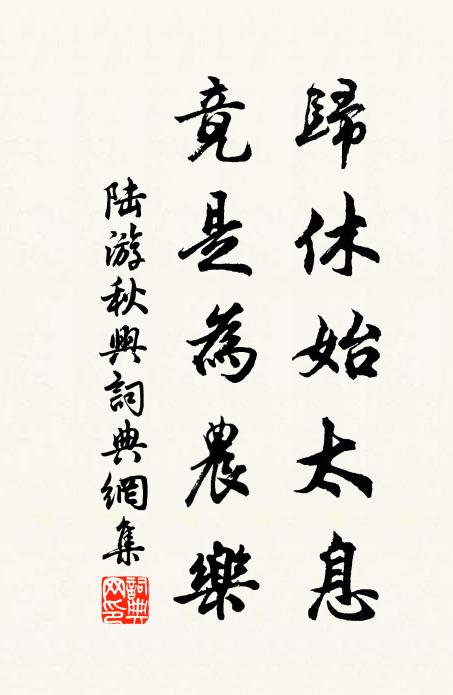 歸休始太息
竟是為農樂
陸游秋興詞典網集
詞典網印